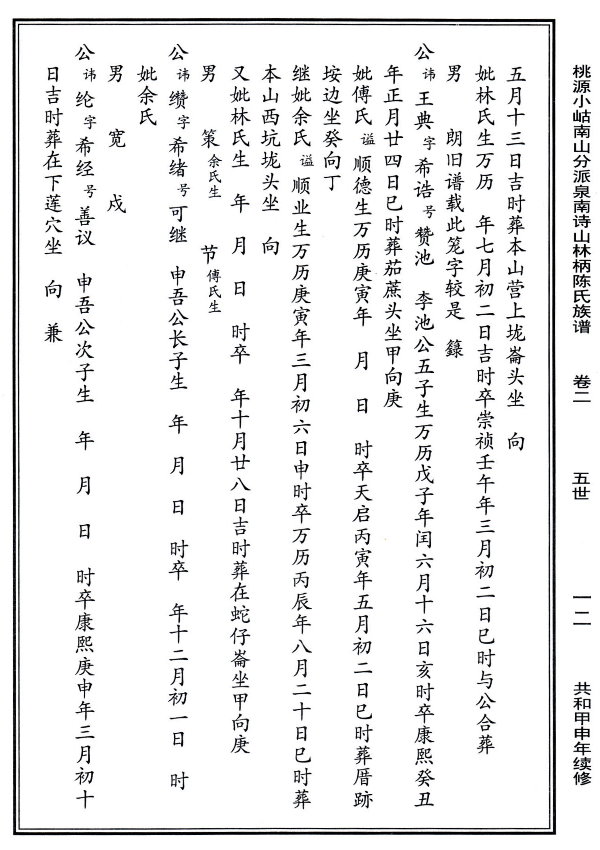 桃源小岵南山分派泉南诗山林柄陈氏族谱 卷二 五世 一二 共和甲申年续修
五月十三日吉时葬本山营上垅崙头坐 向
妣林氏生万历 年七月初二日吉时卒崇祯壬午年三月初二日巳时与公合葬
男 朗旧谱载此笼字较是 籙
公讳王典字希诰号赞池 李池公五子生万历戊子年闰六月十六日亥时卒康熙癸丑
年正月廿四日巳时葬茄蔗头坐甲向庚
妣傅氏谥顺德生万历庚寅年 月 日 时卒天启丙寅年五月初二日巳时葬厝跡
垵边坐癸向丁
继妣余氏谥顺业生万历庚寅年三月初六日申时卒万历丙辰年八月二十日巳时葬
本山西坑垅头坐 向
又妣林氏生 年 月 日 时卒 年十月廿八日吉时葬在蛇仔崙坐甲向庚
男 策余氏生 节傅氏生
公讳缵字希绪号可继 申吾公长子生 年 月 日 时卒 年十二月初一日 时
妣余氏
男 宽 戍
公讳纶字希经号善议 申吾公次子生 年 月 日 时卒康熙庚申年三月初十
日吉时葬在下莲穴坐 向 兼